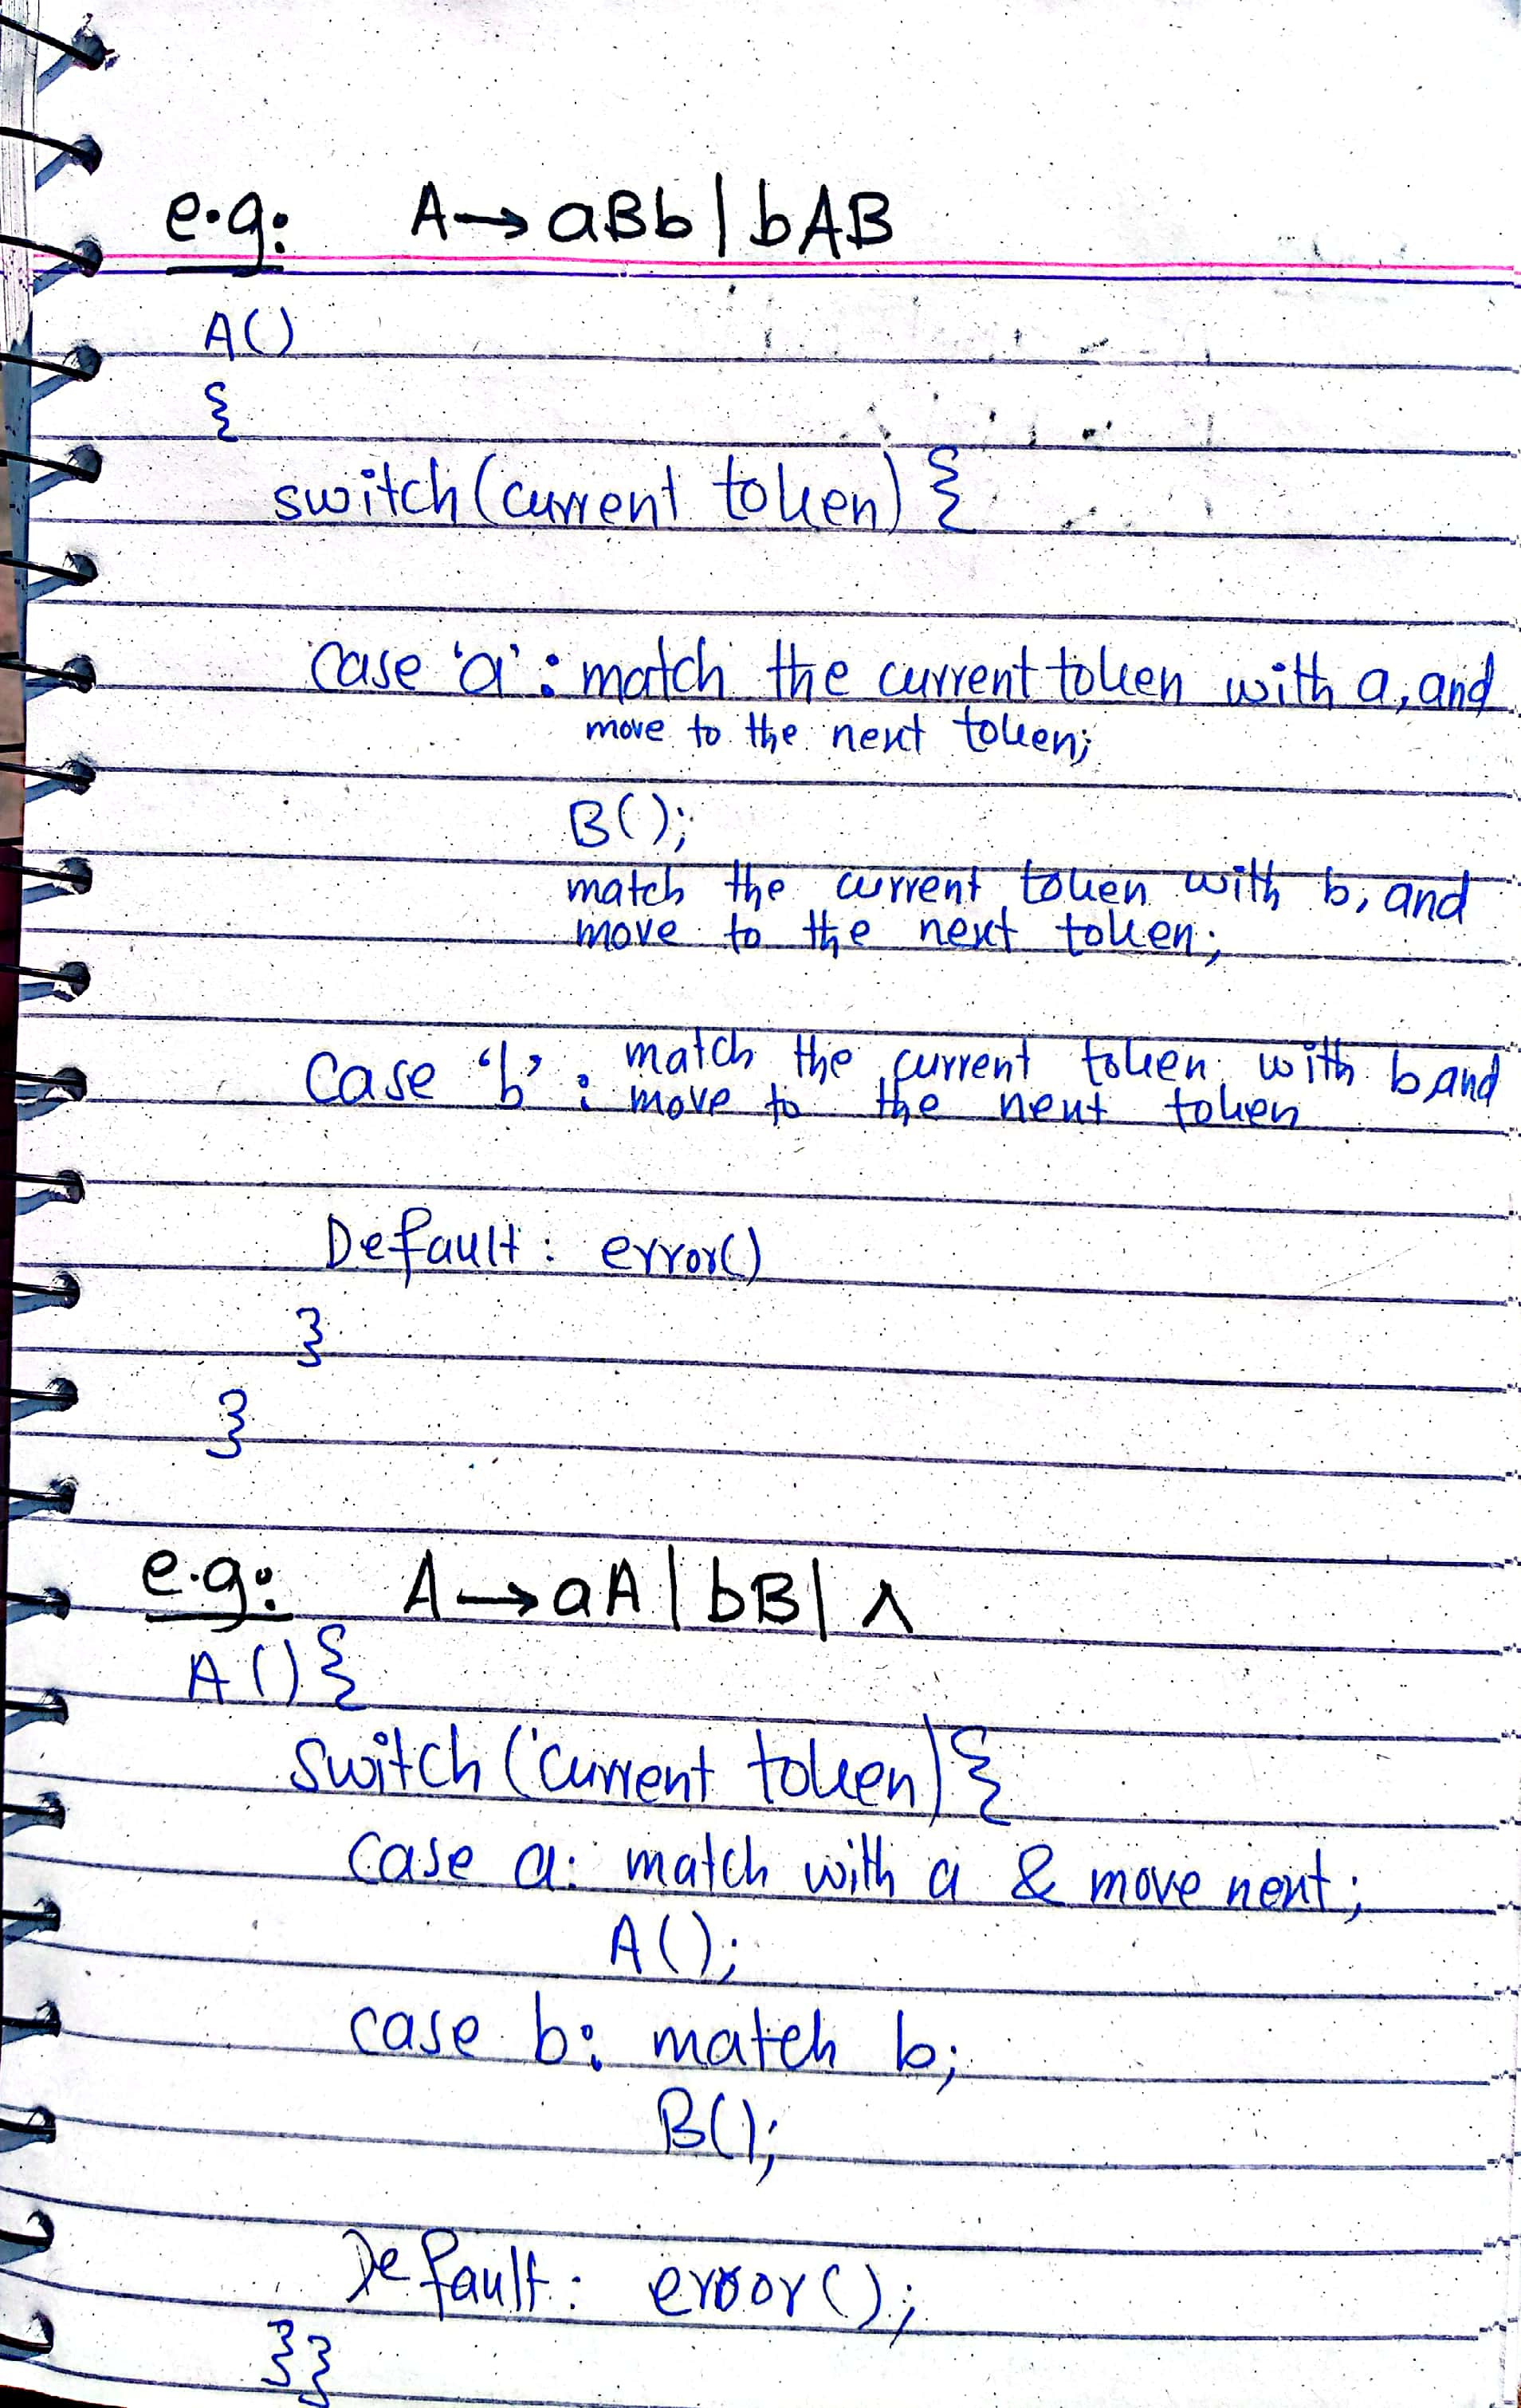 e.g: A→aBb|bAB
A()
{
switch(current token) {
case 'a': match the current token with a, and
move to the next token;
B();
match the current token with b, and
move to the next token;
Case 'b': match the current token with b and
move to the next token
Default: error()
}
}
e.g: A→aA|bB|∧
A(){
switch(current token){
case a: match with a & move next;
A();
case b: match b;
B();
Default: error();
}}